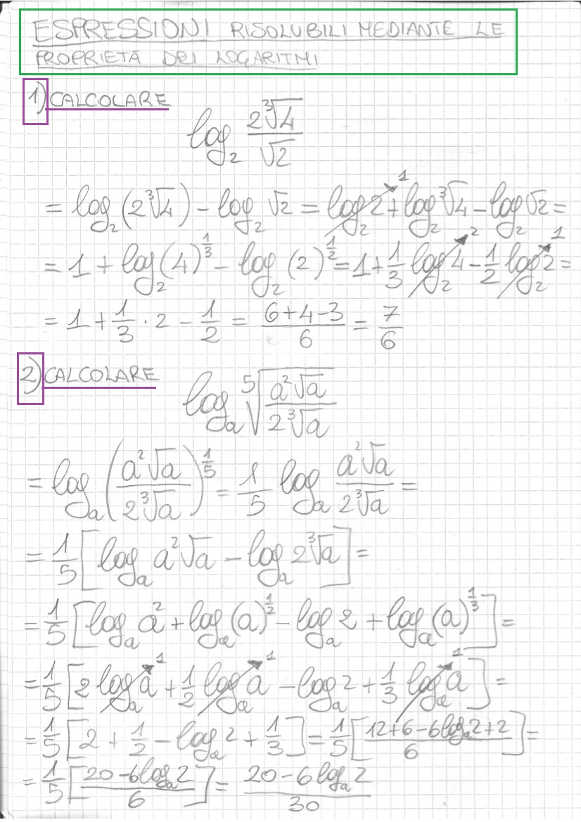 ESPRESSIONI RISOLUBILI MEDIANTE LE
PROPRIETÀ DEI LOGARITMI
1) CALCOLARE
log₂ (2∛4)/(√2)
= log₂(2∛4) - log₂ √2 = log₂2 1 + log₂∛4 - log₂√2 =
= 1 + log₂(4)^(1/3) - log₂(2)^(1/2) = 1 + 1/3 log₂4 2 - 1/2 log₂2 1 =
= 1 + 1/3 · 2 - 1/2 = (6+4-3)/6 = 7/6
2) CALCOLARE
logₐ ⁵√((a²√a)/(2∛a))
= logₐ((a²√a)/(2∛a))^(1/5) = 1/5 logₐ (a²√a)/(2∛a) =
= 1/5[logₐ a²√a - logₐ 2∛a] =
= 1/5[logₐ a² + logₐ(a)^(1/2) - logₐ 2 + logₐ(a)^(1/3)] =
= 1/5[2 logₐ a 1 + 1/2 logₐ a 1 - logₐ 2 + 1/3 logₐ a 1] =
= 1/5[2 + 1/2 - logₐ 2 + 1/3] = 1/5[(12+6-6logₐ2+2)/6] =
= 1/5[(20-6logₐ2)/6] = (20-6logₐ2)/30